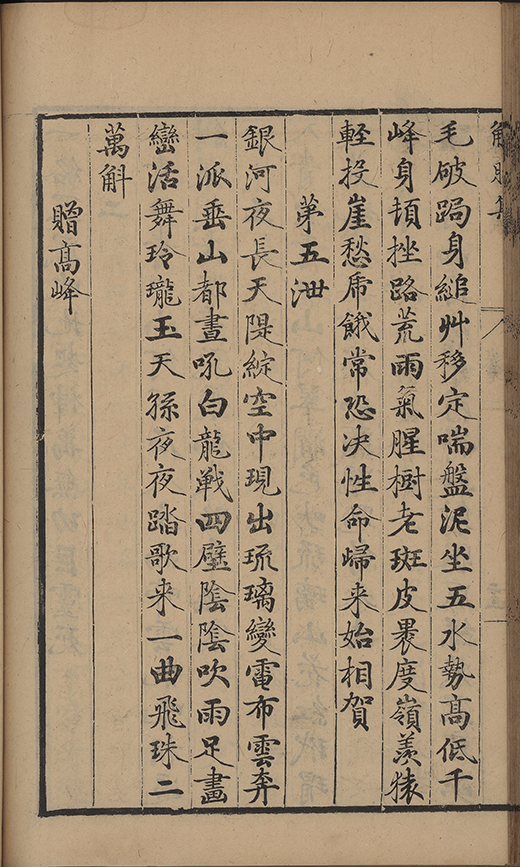 毛破跼身縋艸移定喘盤泥坐五水勢髙低千
峰身頓挫路荒雨氣腥樹老斑皮褁度嶺羨猿
輕投崖愁乕餓常恐决性命歸来始相賀
苐五泄
銀河夜長天隄綻空中現出琉璃變雷布雲奔
一派垂山都晝吼白龍戦四壁陰陰吹雨足畫
巒活舞玲瓏玉天孫夜夜踏歌来一曲飛珠二
萬斛
贈髙峰